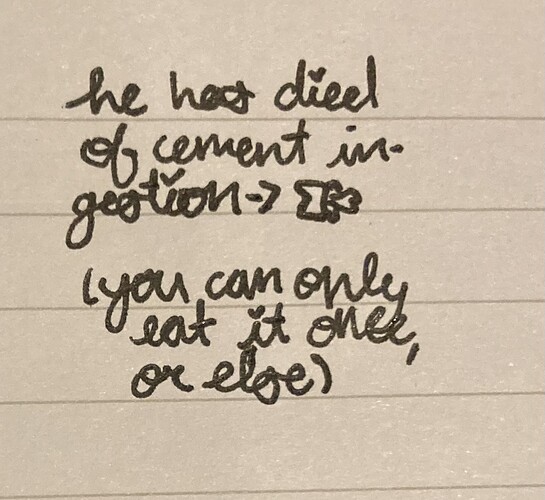 he has died
of cement in-
gestion->
(you can only
eat it once,
or else)